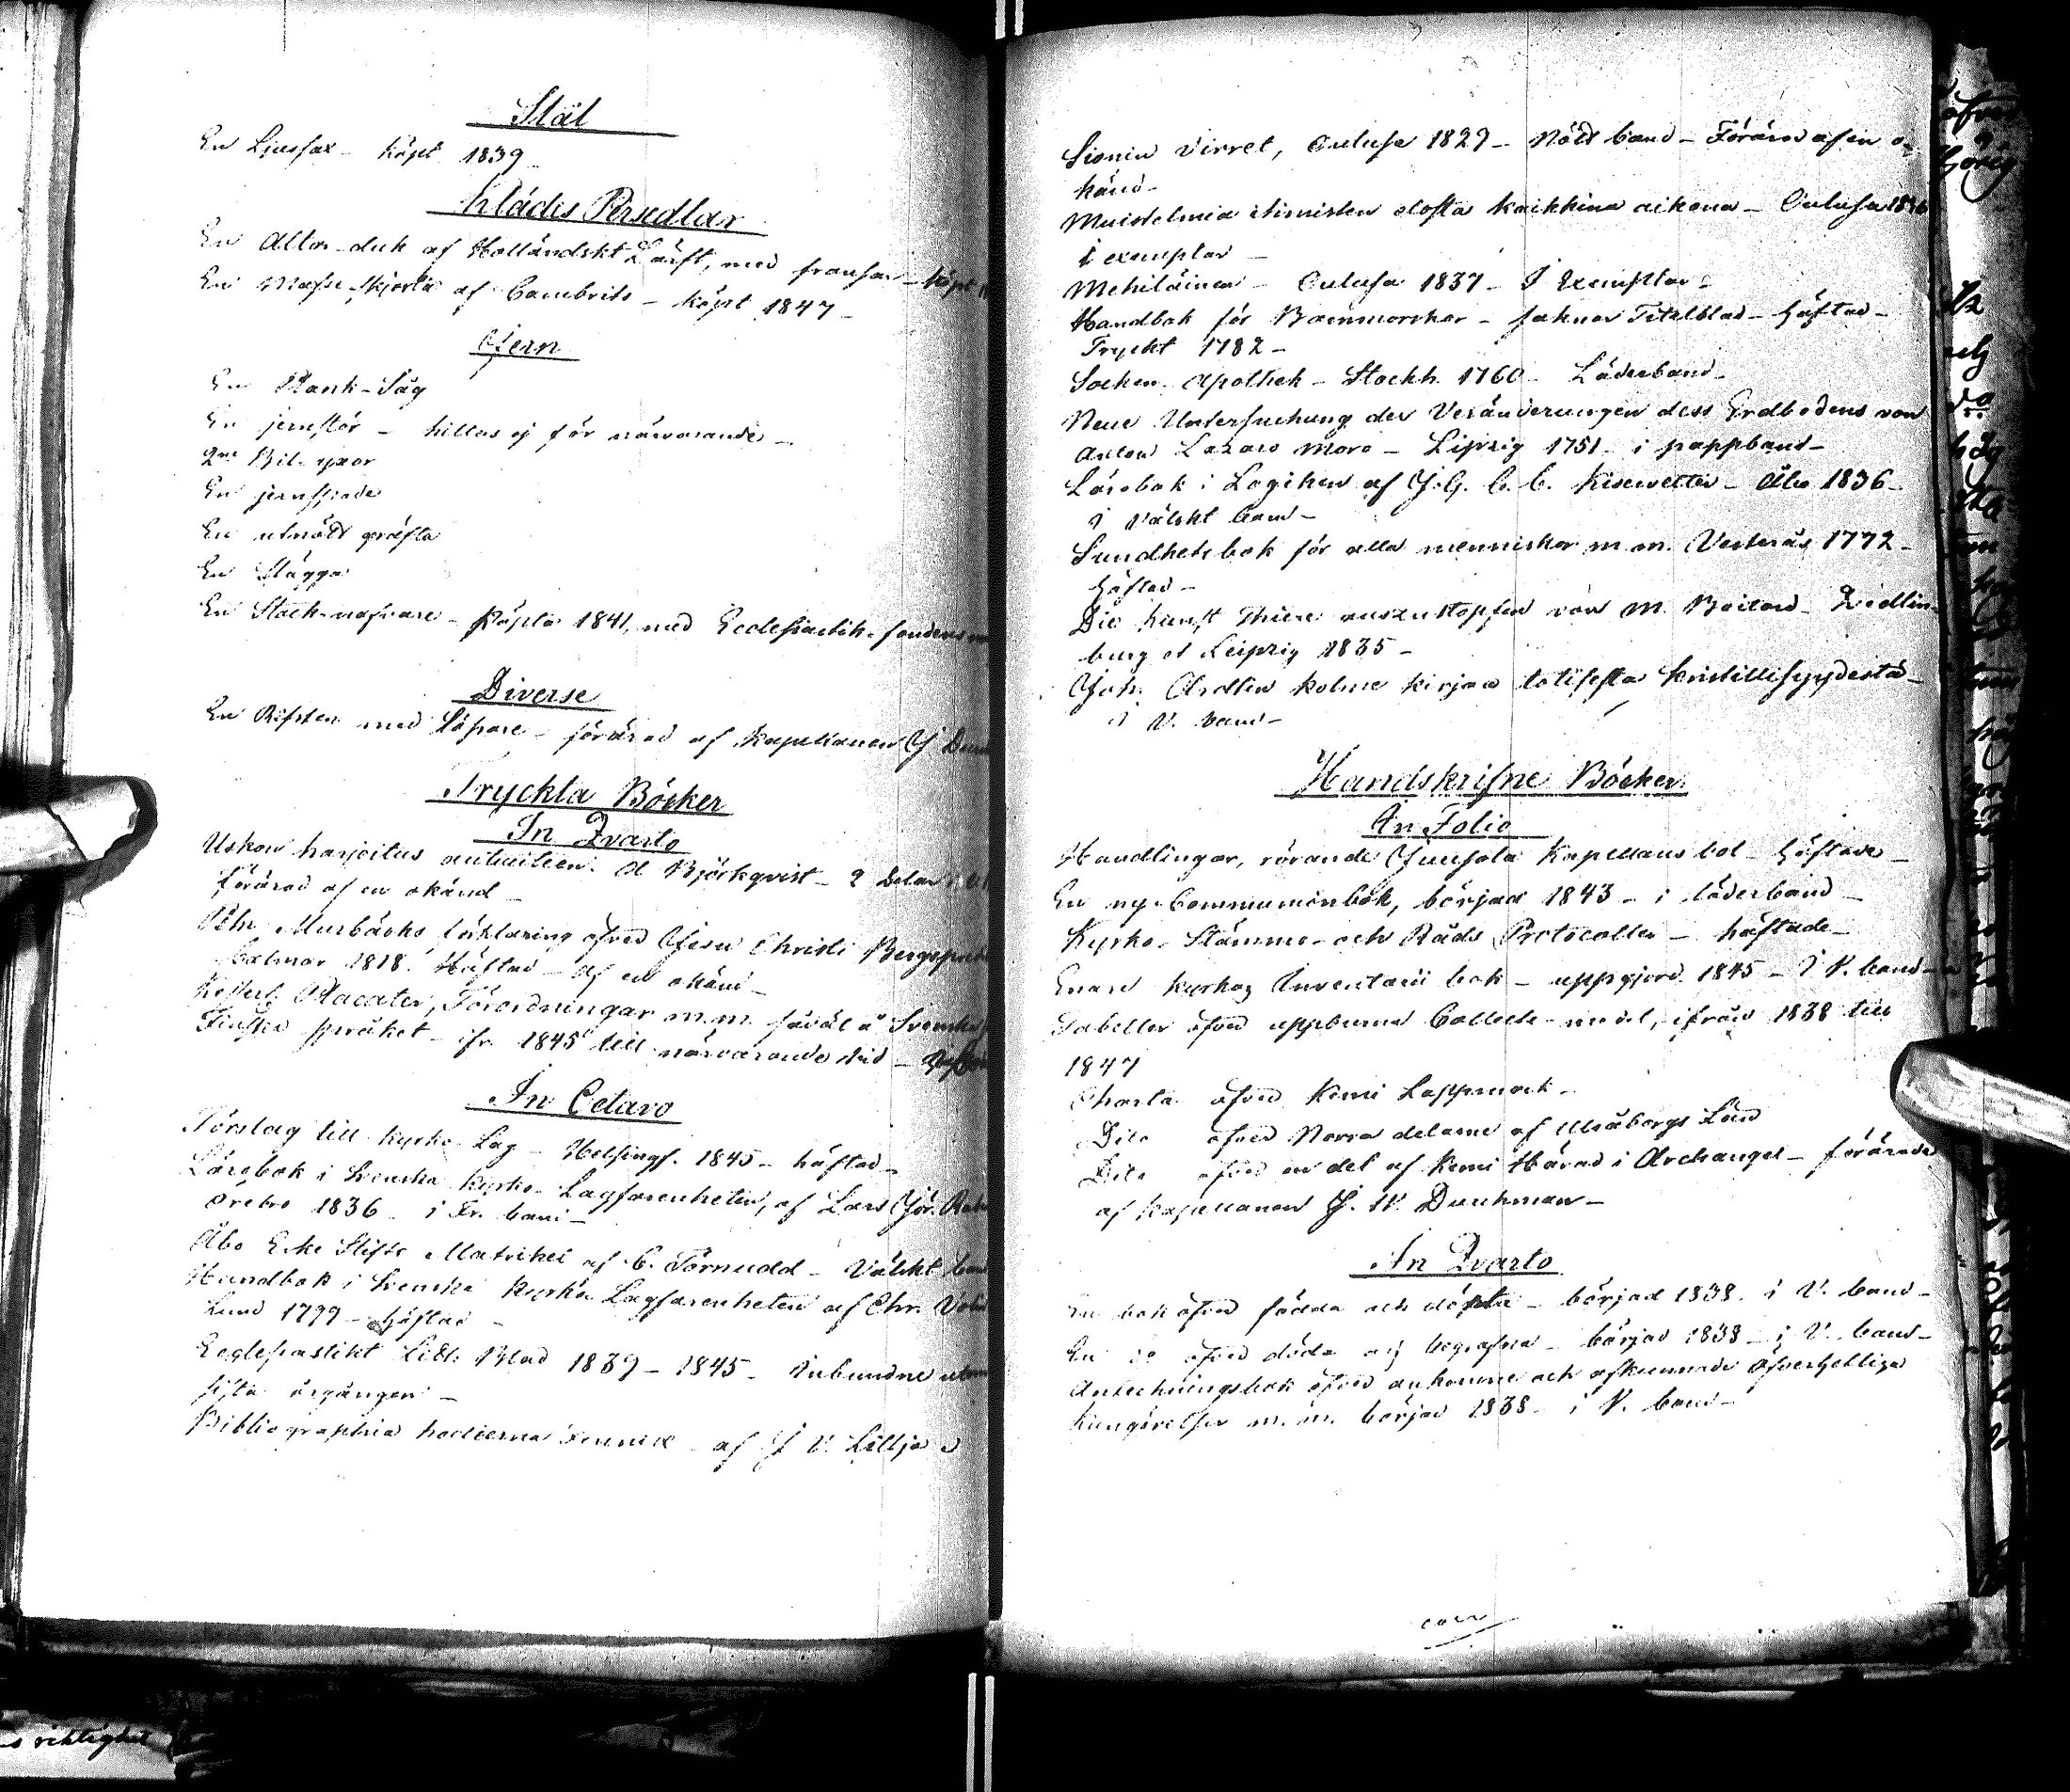 Stål
En Ljussax - köpt 1839 -
Klädes Persedlar
En Altar-duk af Holländskt Lärft, med fransar - köpt
En Mässe-skjorta af Cambrits - köpt 1847 -
Jern
En Plank-Såg
En jernstör - hittas ej för närvarande -
2ne Bil-yxor
En jernspade
En utnött gräfta
En Slägga
En Stock-nafvare - köpta 1841, med Ecclesiastik-fondens
Diverse
En Refsten med Löpare - förärad af Kapellanen J
Tryckta Böcker
In Qvarto
Uskon harjoitus autuuteen. A Björkqvist - 2 Delar i
förärad af en okänd -
Pehr Murbäcks förklaring öfver Jesu Christi
Calmar 1818. Häftad - af en okänd -
Kejserl. Placater, Förordningar m.m. såväl å Svenska
Finska språket - ifr. 1845 till närvarande tid -
In Octavo
Förslag till Kyrko-Lag - Helsingf. 1845 - häftad -
Lärobok i Svenska Kyrko-Lagfarenheten, af Lars Gör.
Örebro 1836 - i Fr. band -
Åbo Erke Stifts Matrikel af C. Törnudd - Välskt band
Handbok i Svenska Kyrko Lagfarenheten af Chr.
Lund 1799 - häftad -
Ecclesiastikt Litt. Blad 1839 - 1845 - Inbundne utom
sista årgången -
Bibliographia hodierna Fennica - af J W. Lillja
Sionin Virret, Oulusa 1829 - Nött band - Förärad af en o-
känd -
Muistelmia ihmisten elosta kaikkina aikoina - Oulusa 1836
1 exemplar -
Mehiläinen - Oulusa 1837 - 1 Exemplar -
Handbok för Barnmorskor - saknar Titelblad - häftad -
Tryckt 1782 -
Socken Apothek - Stockh. 1760 - Läderband -
Neue Untersuchung der Veränderungen dess Erdbodens von
Anton Lazaro Moro - Lipzig 1751 - i pappband -
Lärobok i Logiken af J. G. C. C. Kisewetter - Åbo 1836 -
i Välskt band -
Sundhetsbok för alla menniskor m.m. Vesterås 1772 -
häftad -
Die Kunst Thiere auszustopfen von M. - Qvedlin-
burg et Leipzig 1835 -
Joh. Arndtin kolme kirjaa totisesta kristillisyydestä -
i V. band -
Handskrifne Böcker
In Folio
Handlingar, rörande Kapellans bol - häftade -
En ny Communionbok, börjad 1843 - i läderband -
Kyrko-Stämmo- och Råds Protocoller - häftade -
Enare kyrkas Inventarii bok - uppgjord 1845 - i V. band -
Tabeller öfver uppburna Collecte-medel, ifrån 1838 till
1847
Charta öfver Kemi Lappmark -
Dito öfver Norra delarne af Uleåborgs Län
Dito öfver en del af Kemi Härad i Archangel - förärade
af Kapellanen J. W. Durchman -
In Qvarto
En bok öfver födda och döpta - börjad 1838. i V. band -
En do öfver döda och begrafna - börjad 1838 - i V. band -
Anteckningsbok öfver ankomne och afkunnade Öfverhetliga
Kungörelser m.m. börjad 1838 - i V. band -
riktighet